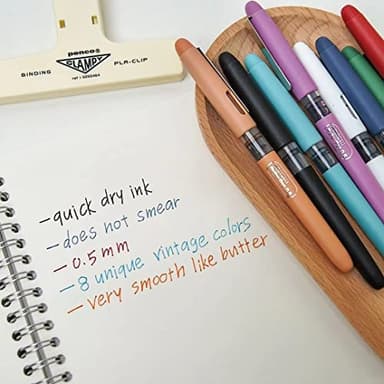 penco®
CLAMPY
BINDING
PLA-CLIP
- quick dry ink
- does not smear
- 0.5 mm
- 8 unique vintage colors
- very smooth like butter